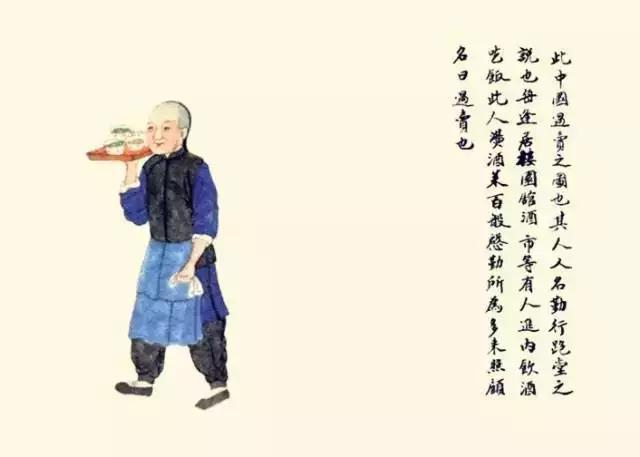 此中國過賣之圖也其人人名勤行跑堂之
說也每逢居樓園館酒市等有人進內飲酒
吃飯此人燙酒菜百般慇勤所為多来照顧
名曰過賣也